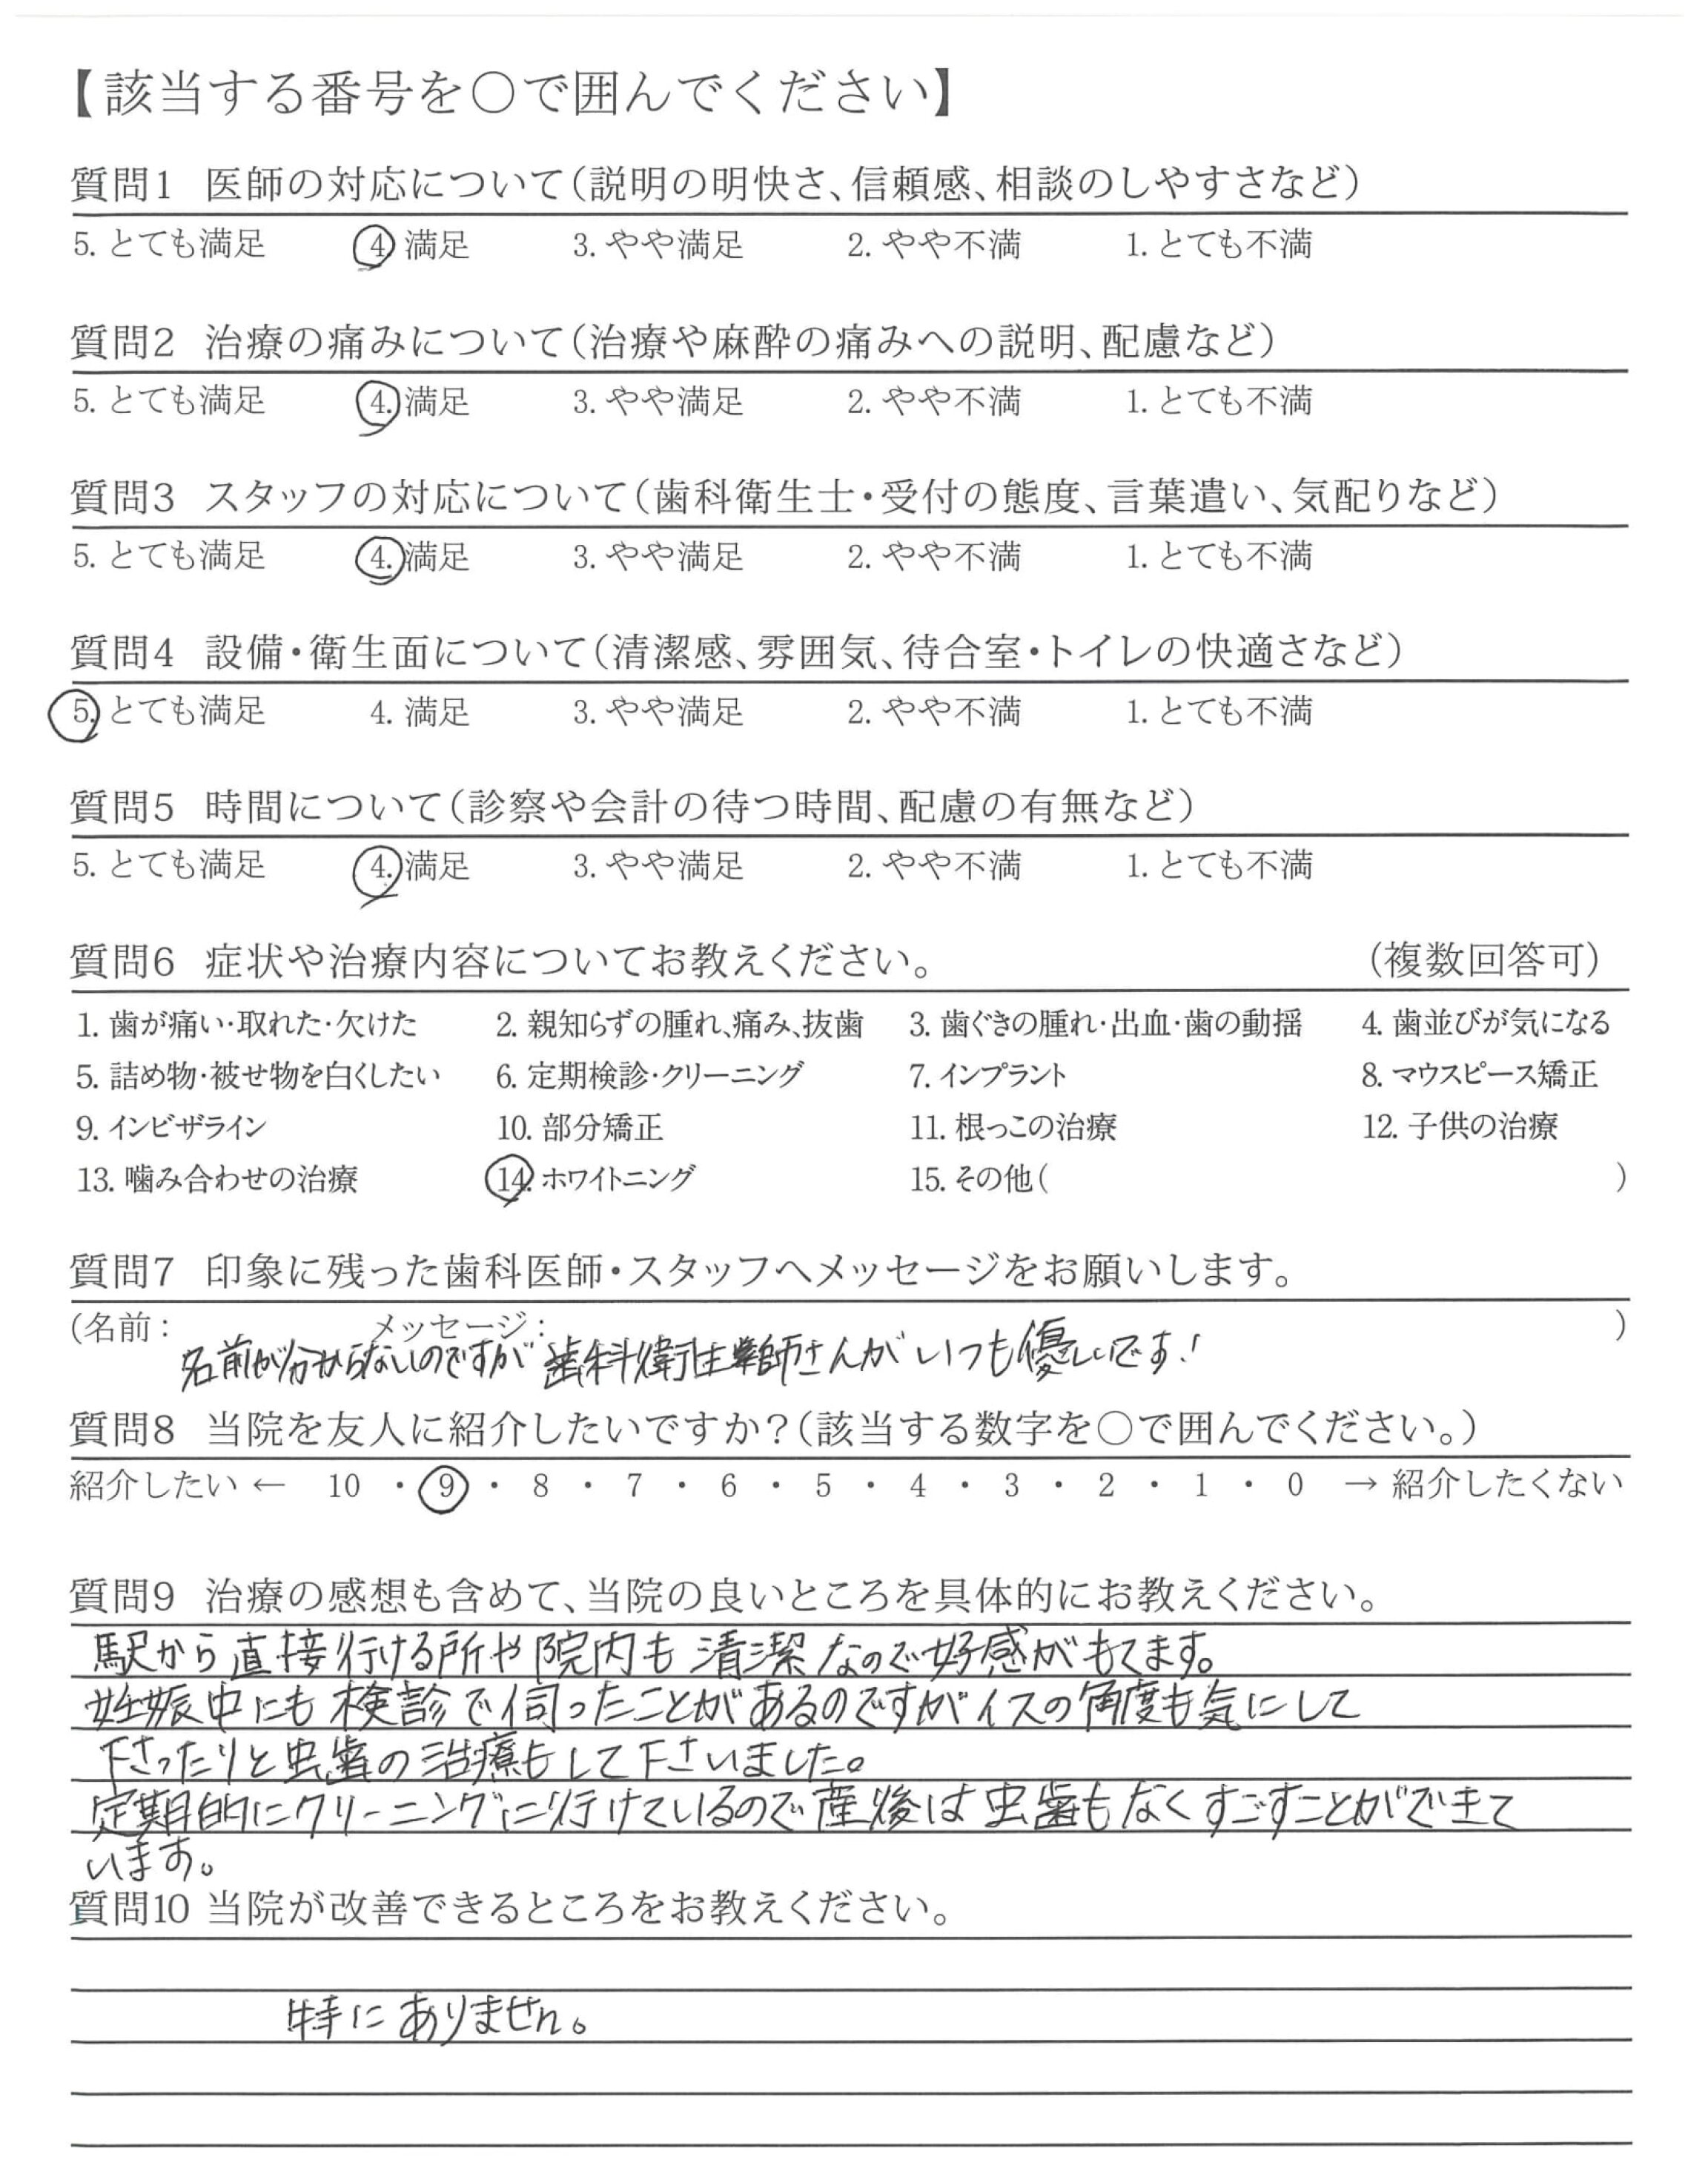 【該当する番号を○で囲んでください】
質問1 医師の対応について（説明の明快さ、信頼感、相談のしやすさなど）
5. とても満足 4. 満足 3. やや満足 2. やや不満 1. とても不満
質問2 治療の痛みについて（治療や麻酔の痛みへの説明、配慮など）
5. とても満足 4. 満足 3. やや満足 2. やや不満 1. とても不満
質問3 スタッフの対応について（歯科衛生士・受付の態度、言葉遣い、気配りなど）
5. とても満足 4. 満足 3. やや満足 2. やや不満 1. とても不満
質問4 設備・衛生面について（清潔感、雰囲気、待合室・トイレの快適さなど）
5. とても満足 4. 満足 3. やや満足 2. やや不満 1. とても不満
質問5 時間について（診察や会計の待つ時間、配慮の有無など）
5. とても満足 4. 満足 3. やや満足 2. やや不満 1. とても不満
質問6 症状や治療内容についてお教えください。 （複数回答可）
1. 歯が痛い・取れた・欠けた 2. 親知らずの腫れ、痛み、抜歯 3. 歯ぐきの腫れ・出血・歯の動揺 4. 歯並びが気になる
5. 詰め物・被せ物を白くしたい 6. 定期検診・クリーニング 7. インプラント 8. マウスピース矯正
9. インビザライン 10. 部分矯正 11. 根っこの治療 12. 子供の治療
13. 噛み合わせの治療 14. ホワイトニング 15. その他（ ）
質問7 印象に残った歯科医師・スタッフへメッセージをお願いします。
（名前： メッセージ： ）
名前が分からないのですが 歯科衛生師さんがいつも優しいです！
質問8 当院を友人に紹介したいですか？（該当する数字を○で囲んでください。）
紹介したい ← 10 ・ 9 ・ 8 ・ 7 ・ 6 ・ 5 ・ 4 ・ 3 ・ 2 ・ 1 ・ 0 → 紹介したくない
質問9 治療の感想も含めて、当院の良いところを具体的にお教えください。
駅から直接行ける所や院内も清潔なので好感がもてます。
妊娠中にも検診で伺ったことがあるのですがイスの角度も気にして
下さったりと虫歯の治療もして下さいました。
定期的にクリーニングに行けているので産後は虫歯もなくすごすことができて
います。
質問10 当院が改善できるところをお教えください。
特にありません。